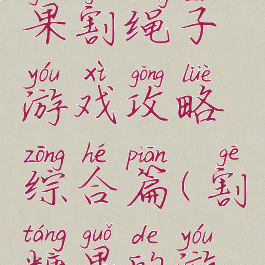 果割绳子
yóu xì gōng lüè
游戏攻略
zōng hé piān gē
综合篇(割
táng guǒ de yóu
糖果的游